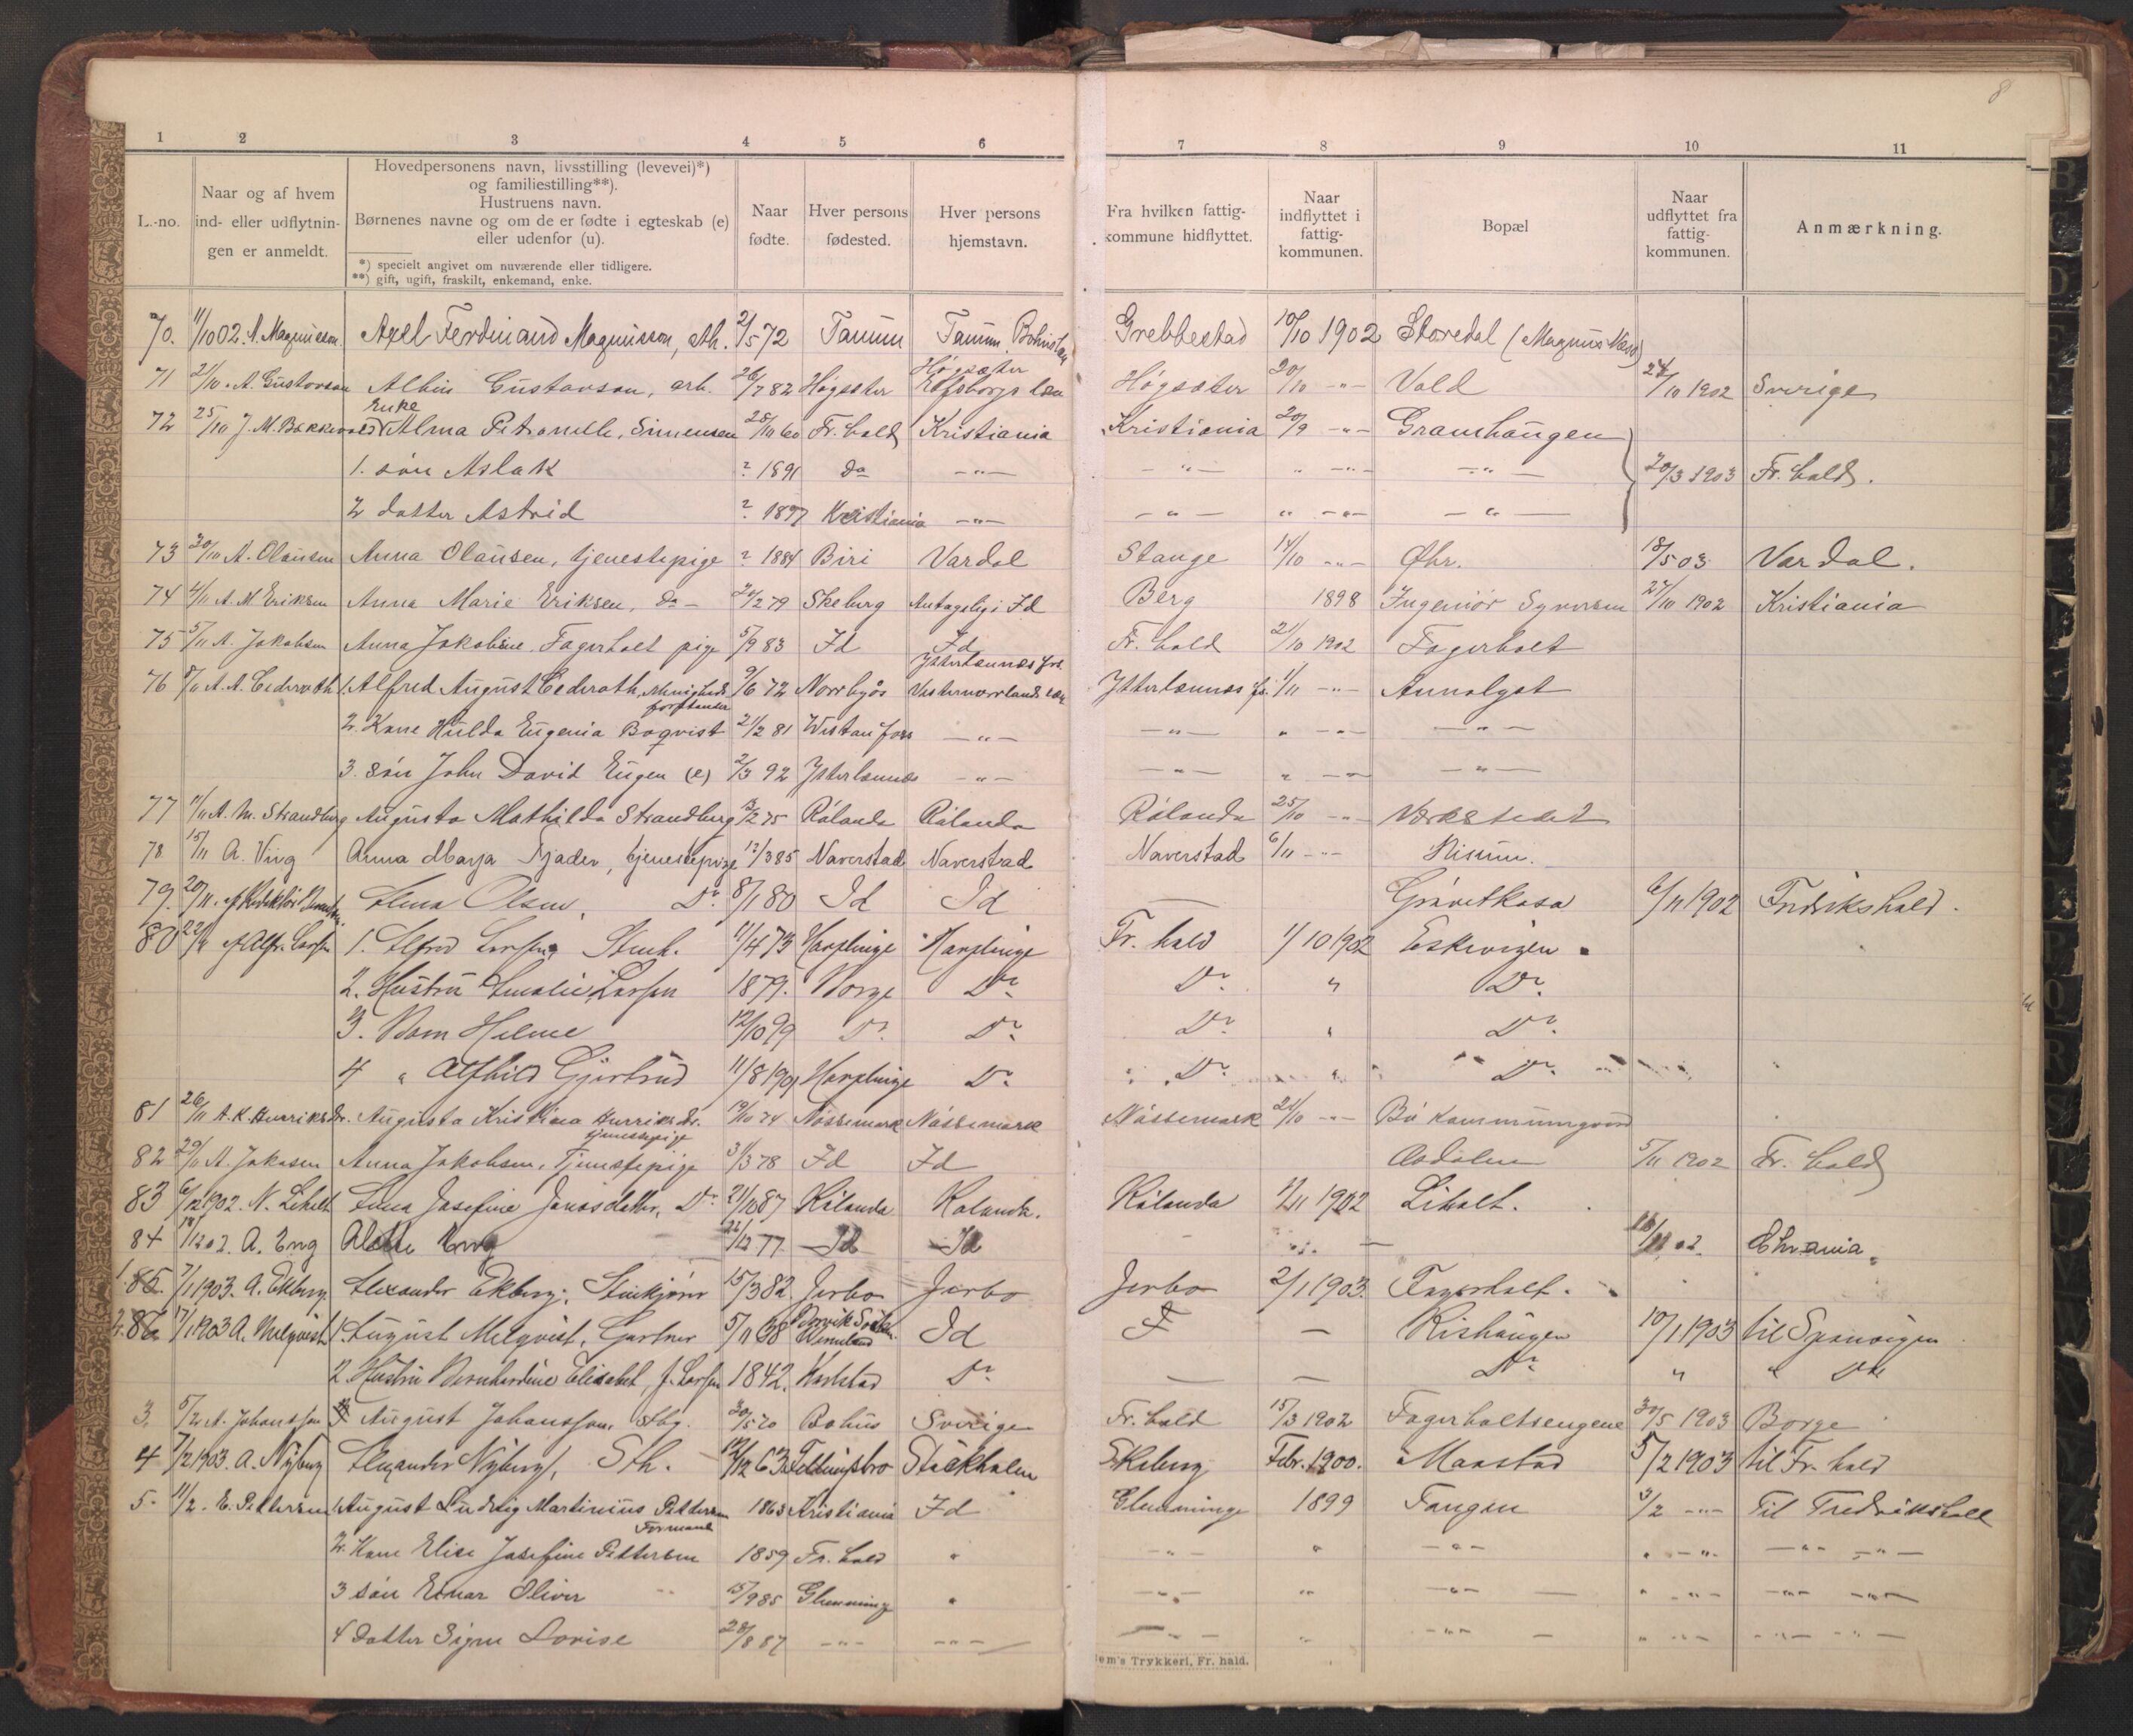 8
1 2 3 4 5 6 7 8 9 10 11
L.-no.
Naar og af hvem
ind- eller udflytnin-
gen er anmeldt.
Hovedpersonens navn, livsstilling (levevei)*)
og familiestilling**).
Hustruens navn.
Børnenes navne og om de er fødte i egteskab (e)
eller udenfor (u).
*) specielt angivet om nuværende eller tidligere.
**) gift, ugift, fraskilt, enkemand, enke.
Naar
fødte.
Hver persons
fødested.
Hver persons
hjemstavn.
Fra hvilken fattig-
kommune hidflyttet.
Naar
indflyttet i
fattig-
kommunen.
Bopæl
Naar
udflyttet fra
fattig-
kommunen.
Anmærkning.
70. 11/10 02. A. Magnusson Axel Ferdinand Magnusson, Arb. 2/5 72 Tanum Tanum, Grebbestad 10/10 1902 Storedal
71 21/10 - A. Gustavson Albin Gustavson, arb. 26/7 82 Högsäter Högsäter Elfsborgs län Högsäter 20/10 -"- Vold 24/10 1902 Sverige
Enke
72 25/10 J. M. Alma Petronelle, Simensen 28/10 60 Fr. hald Kristiania Kristiania 20/9 -"- Gramhaugen
1. søn Aslak ? 1891 do -"- -"- " -"- -"- 20/3 1903 Fr. hald.
2 datter Astrid ? 1897 Kristiania -"- -"- " -"- -"-
73 30/10 A. Olausen Anna Olausen, tjenestepige ? 1884 Biri Vardal Stange 14/10 -"- Øhr. 18/5 03 Vardal.
74 4/11 A. M Eriksen Anna Marie Eriksen, do - 20/2 79 Skeberg Antagelig i Id Berg 1898 Ingeniør Syversen 27/10 1902 Kristiania
75 5/11 A. Jakobsen Anna Jakobine Fagerholt pige 5/9 83 Id Id Fr. hald 21/10 1902 Fagerholt
76 8/11 A. A. Cederoth 1. Alfred August Cederoth, Menigheds forstander 9/6 72 Norrbyås Ytterlännäs Vesternorrlands län Ytterlännäs 1/11 -"- Annolyst
2. Kone Hulda Eugenia Boqvist 21/2 81 -"- -"- " -"- -"-
3. søn John David Eugen (e) 2/3 92 Ytterlännäs -"- -"- " -"- -"-
77 11/11 A. M. Strandberg Augusta Mathilda Strandberg 13/2 75 Rålanda Rålanda Rålanda 25/10 -"- Værkstedet
78. 15/11 A. Anna Marja Fjäder, tjenestepige 12/3 85 Naverstad Naverstad Naverstad 6/11 -"- Risum.
79. 20/11 Alma Olsen, Do. 8/1 80 Id Id — Grønetkasa 6/11 1902 Fredrikshald.
80 22/11 af Alfr. Larsen 1. Alfred Larsen, Stenh. 11/4 73 Harplinge Harplinge Fr. hald 1/10 1902 Eskevigen
2. Hustru Emalie Larsen 1879. Borge Do. Do. " Do.
3. Barn Helene 12/10 99 Do. Do. Do. " Do.
4 " Alfhild Gjertrud 11/8 1901 Harplinge Do. Do. " Do.
81 26/11 A. K. Henriksdr. Augusta Kristina Henriksdr. tjenestepige 19/10 74 Nössemark Nössemark Nössemark 24/10 -"- Bø Kommunegaard
82 29/11 A. Jakosen Anna Jakobsen, Tjenstepige 31/3 78 Id Id Asdalen 5/11 1902 Fr. hald
83 6/12 1902. N. Liholt Lina Josefine Jonasdatter, Do 21/10 87 Rålanda Rålanda. Rålanda 1/11 1902 Liholt.
84 18/12 02. A. Eng Alette Eng 22/12 77 Id Id — 02. Chr.ania
1. 85. 7/1 1903. A. Ekberg Alexander Ekberg, Stenkjører 15/3 82. Järbo Järbo Järbo 2/1 1903. Fagerholt.
2. 86. 17/1 1903 A. Melqvist 1. August Melqvist, Gartner 5/11 38 Wermland Id — Rishaugen 10/1 1903 til Sponvigen
2. Hustru Bernhardine Elisabet, f. Larsen 1842. Karlstad Do. — — Do. " " Do
3. 5/2 A. Johansson August Johansson, Stbg. 30/5 70 Bohus Sverige Fr. hald 15/3 1902 Fagerholtsengene 30/5 1903 Borge
4 7/2 1903. A. Nyberg Alexander Nyberg, Sth. 12/12 63 Fellingsbro Stockholm Skeberg Febr. 1900. Maastad 5/2 1903 til Fr. hald
5. 11/2. E. Pettersen 1. August Ludvig Martinius Pettersen Formand 1863 Kristiania Id Glemminge 1899 Tangen 3/2 -"- Til Fredrikshald
2. Kone Elise Josefine Pettersen 1859 Fr. hald " -"- " -"- " -"- -"- -"-
3 søn Einar Oliver 15/9 85 Glemminge " -"- " -"- " -"- -"- -"-
4 Datter Signe Lovise 28/8 87 -"- -"- -"- " -"- " -"- -"- -"-
em's Trykkeri, Fr. hald.